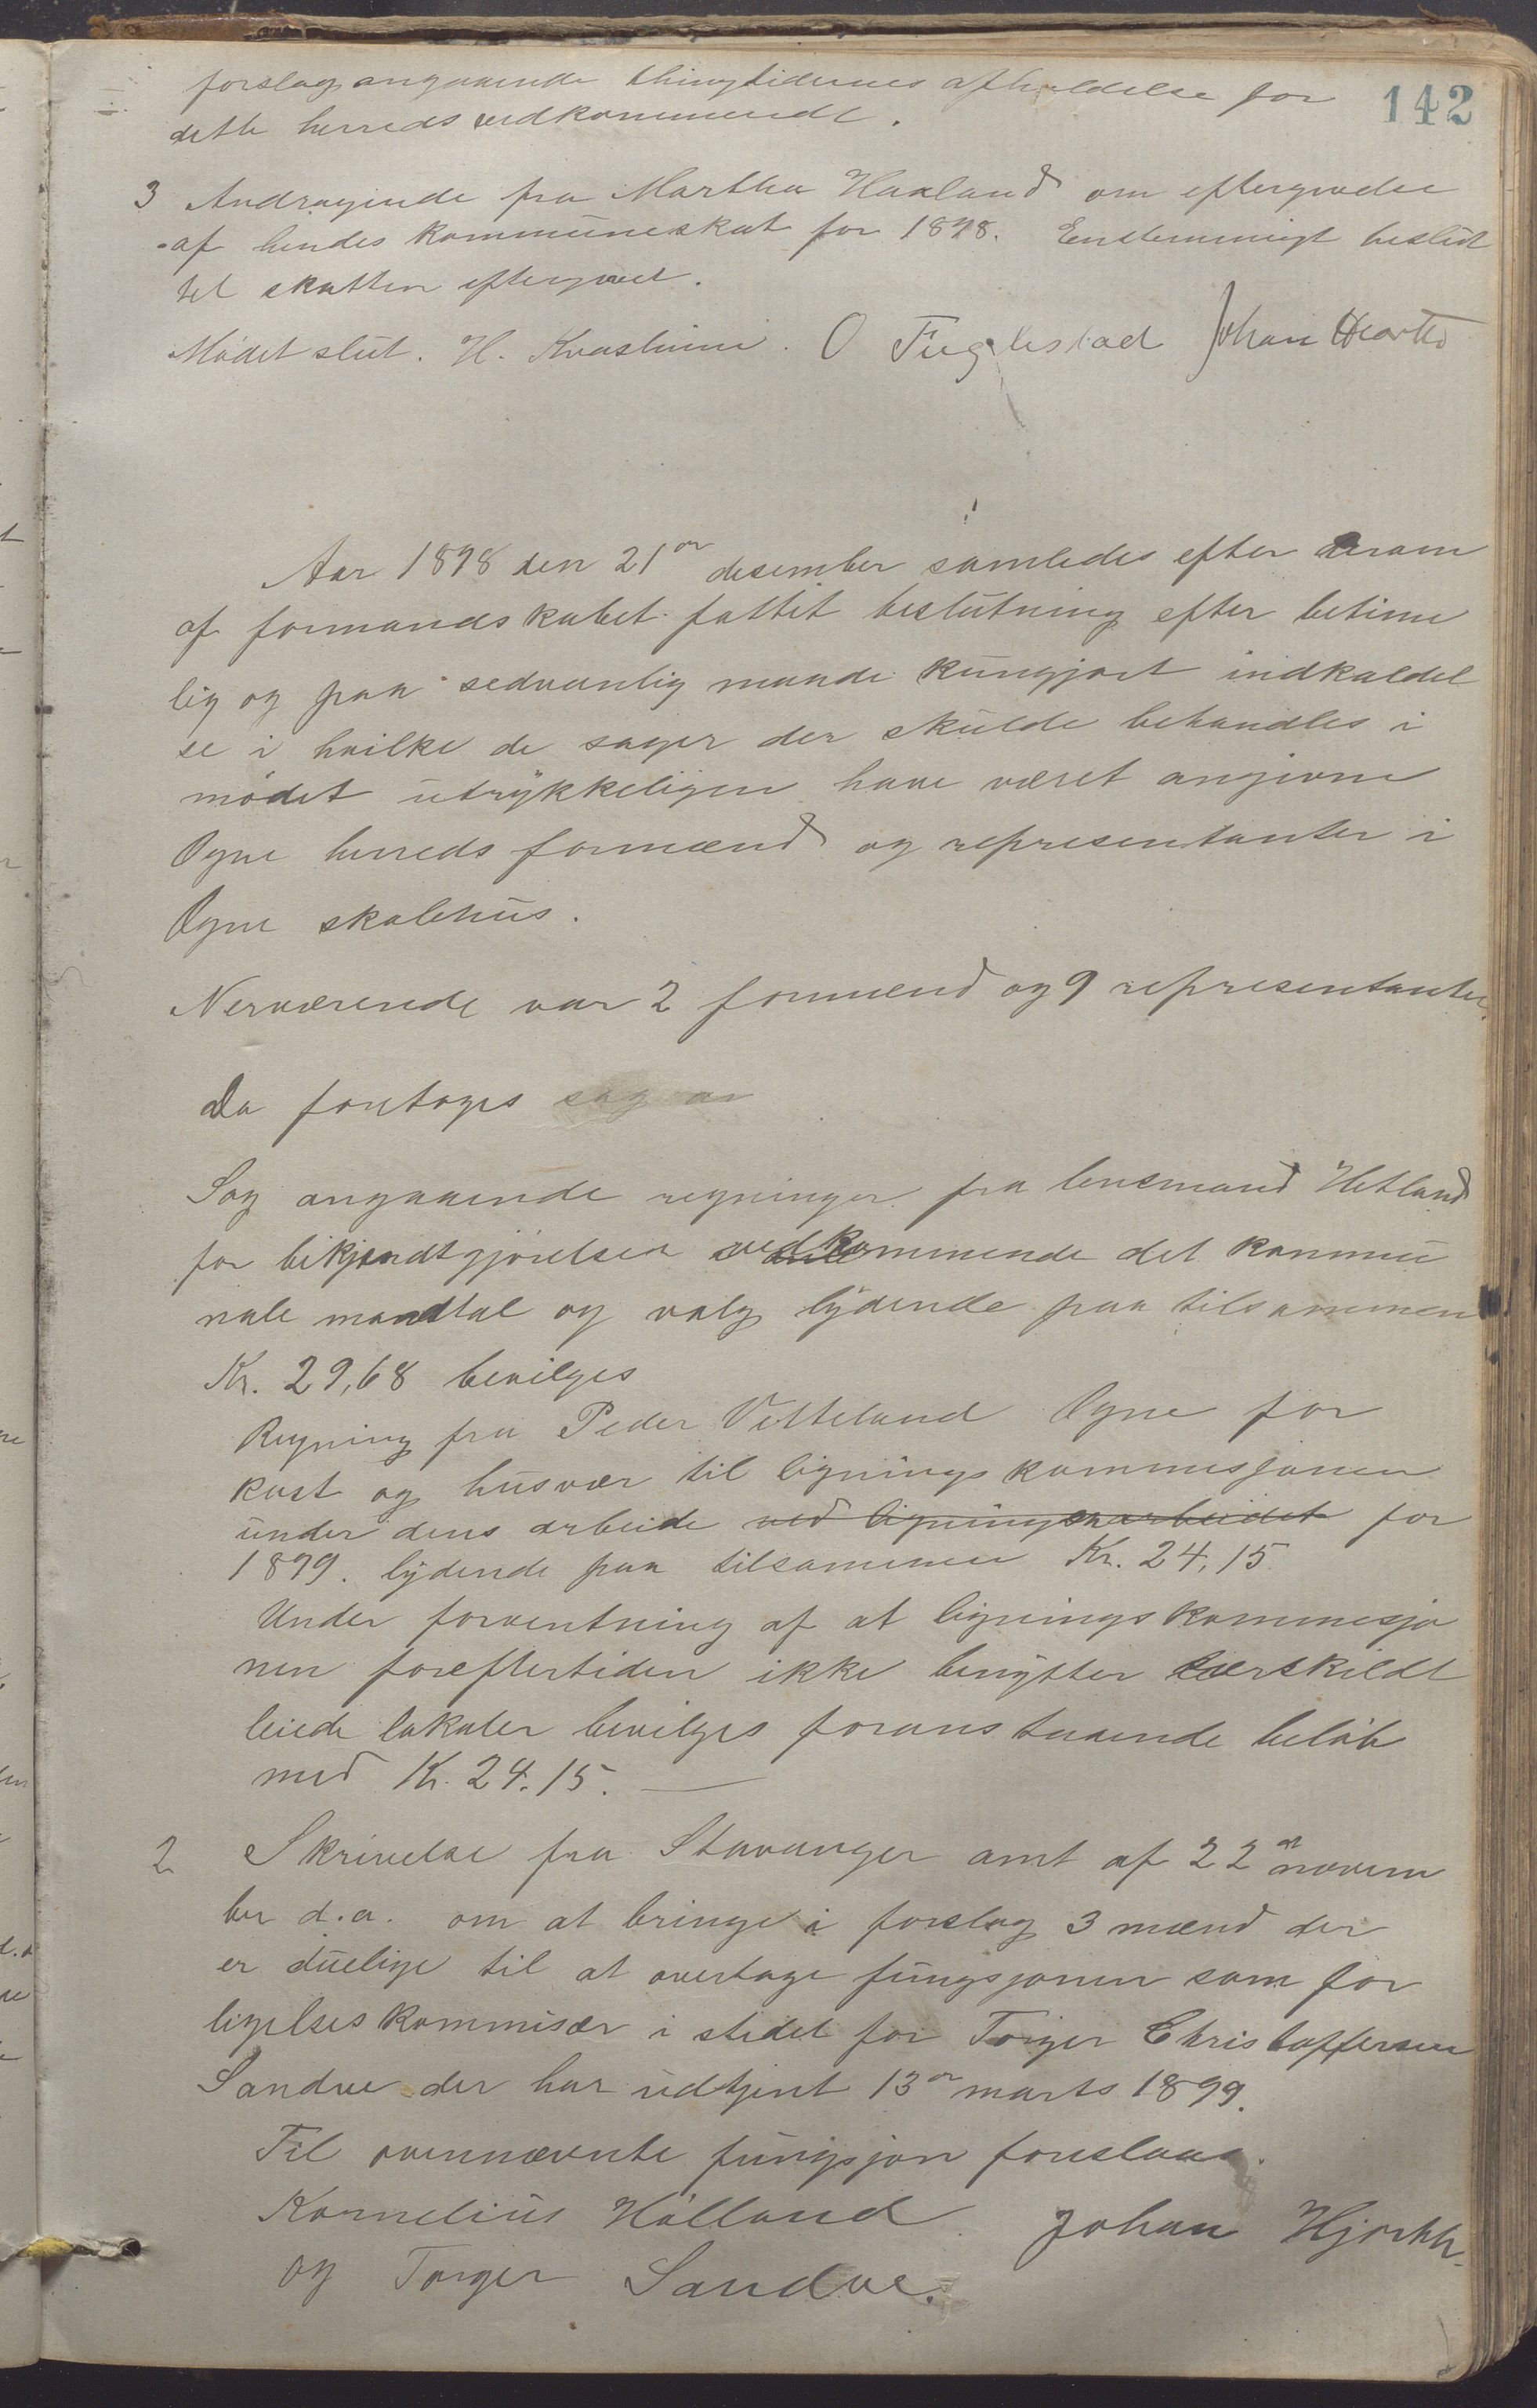 142
forslag angaaende thingtidernes afholdelse for
dette herreds vedkommende.
3 Andragende fra Martha Haaland om eftergivelse
af hendes kommuneskat for 1898. Enstemmigt beslut
tet skatten eftergivet.
Mødet slut. H. Kvasleime. O Fuglestad Johan Hjorth
Aar 1898 den 21de desember samledes efter
af formandskabet fattet beslutning efter betime
lig og paa sedvanlig maade kungjort indkaldel
se i hvilke de sager der skulde behandles i
mødet utrykkeligen have været angivne
Ogne herreds formænd og representanter i
Ogne skolehus.
Nerværende var 2 formænd og 9 representanter.
Da foretoges sag
Sag angaaende regninger fra lensmand Hetland
for bekjendtgjørelser vedkommende det kommu
nale mandtal og valg lydende paa tilsammen
Kr. 29,68 bevilges
Regning fra Peder Vetteland Ogne for
kost og husvær til ligningskommisjonen
under dens arbeide ved ligningsarbeidet for
1899. lydende paa tilsammen Kr. 24,15
Under forventning af at ligningskommesjo
nen foreftertiden ikke benytter særskildt
leiede lokaler bevilges foranstaaende beløb
med Kr. 24.15. —
2 Skrivelse fra Stavanger amt af 22de novem
ber d.a. om at bringe i forslag 3 mænd der
er duelige til at overtage fungsjonen som for
ligelseskommisær i stedet for Torger Christoffersen
Sandve der har udtjent 13de marts 1899.
Til ovennævnte fungsjon foreslaaes.
Kornelius Hålland Johan Hjorth
og Torger Sandve.